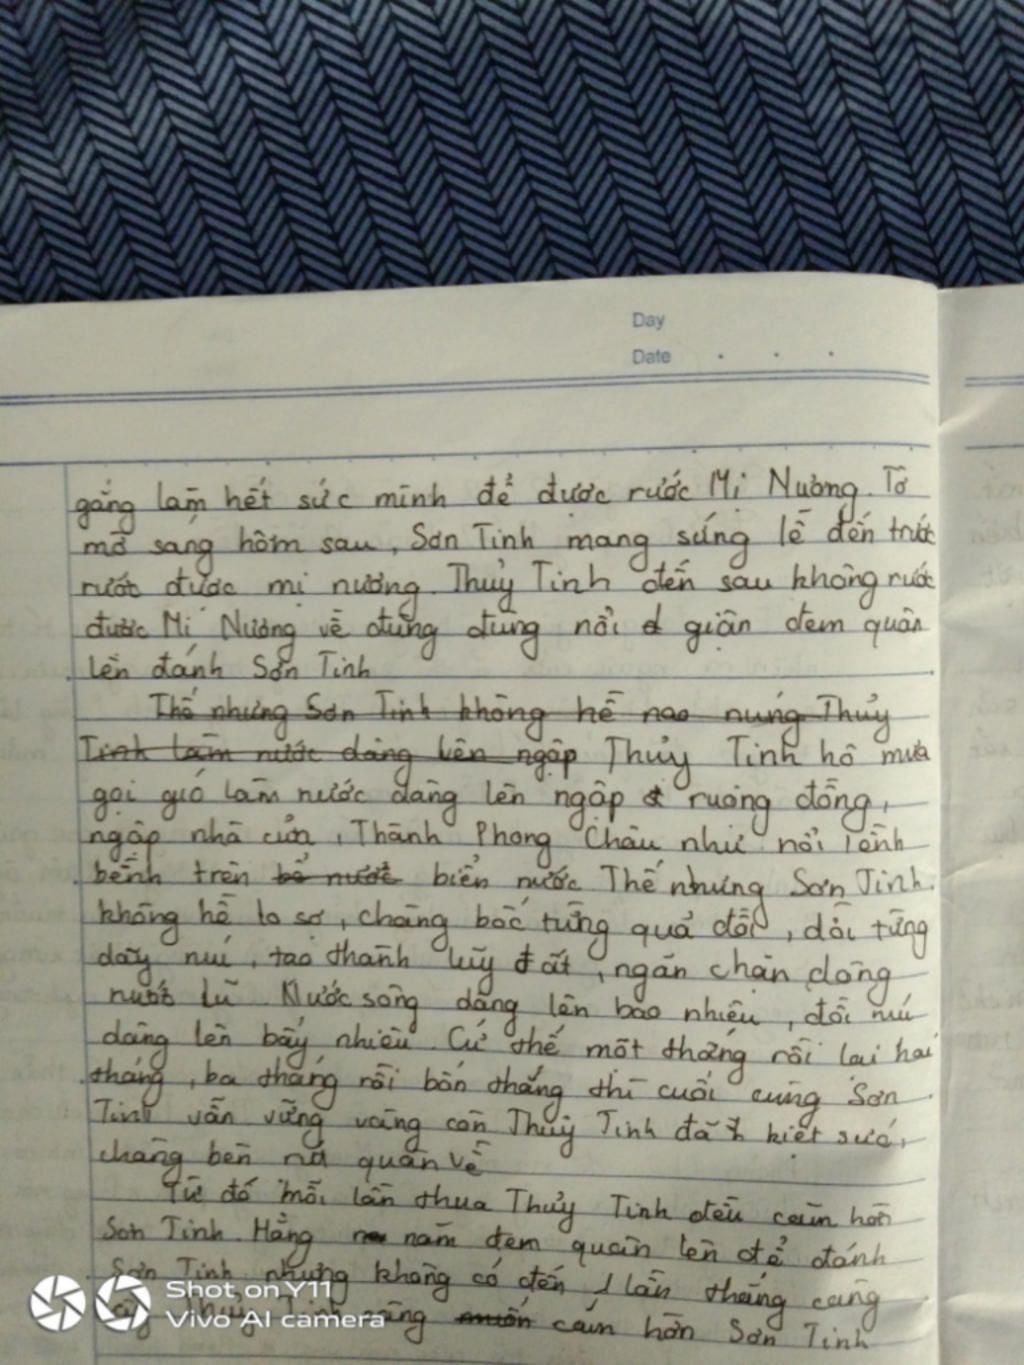 Day
Date
gắng làm hết sức mình để được rước Mị Nương. Tờ
mờ sáng hôm sau, Sơn Tinh mang sứng lễ đến trước
rướt được mị nương. Thuỷ Tinh đến sau không rước
được Mị Nương về đùng đùng nổi giận đem quân
lên đánh Sơn Tinh
Thế nhưng Sơn Tinh không hề nao núng Thủy
Tinh làm nước dâng lên ngập Thủy Tinh hô mưa
gọi gió làm nước dâng lên ngập ruộng đồng,
ngập nhà cửa, Thành Phong Châu như nổi lềnh
bềnh trên bể nước biển nước Thế nhưng Sơn Tinh
không hề lo sợ, chàng bốc từng quả đồi, dời từng
dãy núi, tạo thành lũy đất, ngăn chặn dòng
nướt lũ Nước sông dâng lên bao nhiêu, đồi núi
dâng lên bấy nhiêu. Cứ thế một tháng rồi lại hai
tháng, ba tháng rồi bốn tháng thì cuối cùng Sơn
Tinh vẫn vững vàng còn Thuỷ Tinh đã kiệt sức,
chàng bèn rút quân về
Từ đó mỗi lần thua Thủy Tinh đều căm hờn
Sơn Tinh. Hằng năm đem quân lên để đánh
Sơn Tinh nhưng không có đến 1 lần thắng càng
căm hờn Sơn Tinh
Shot on Y11
Vivo AI camera